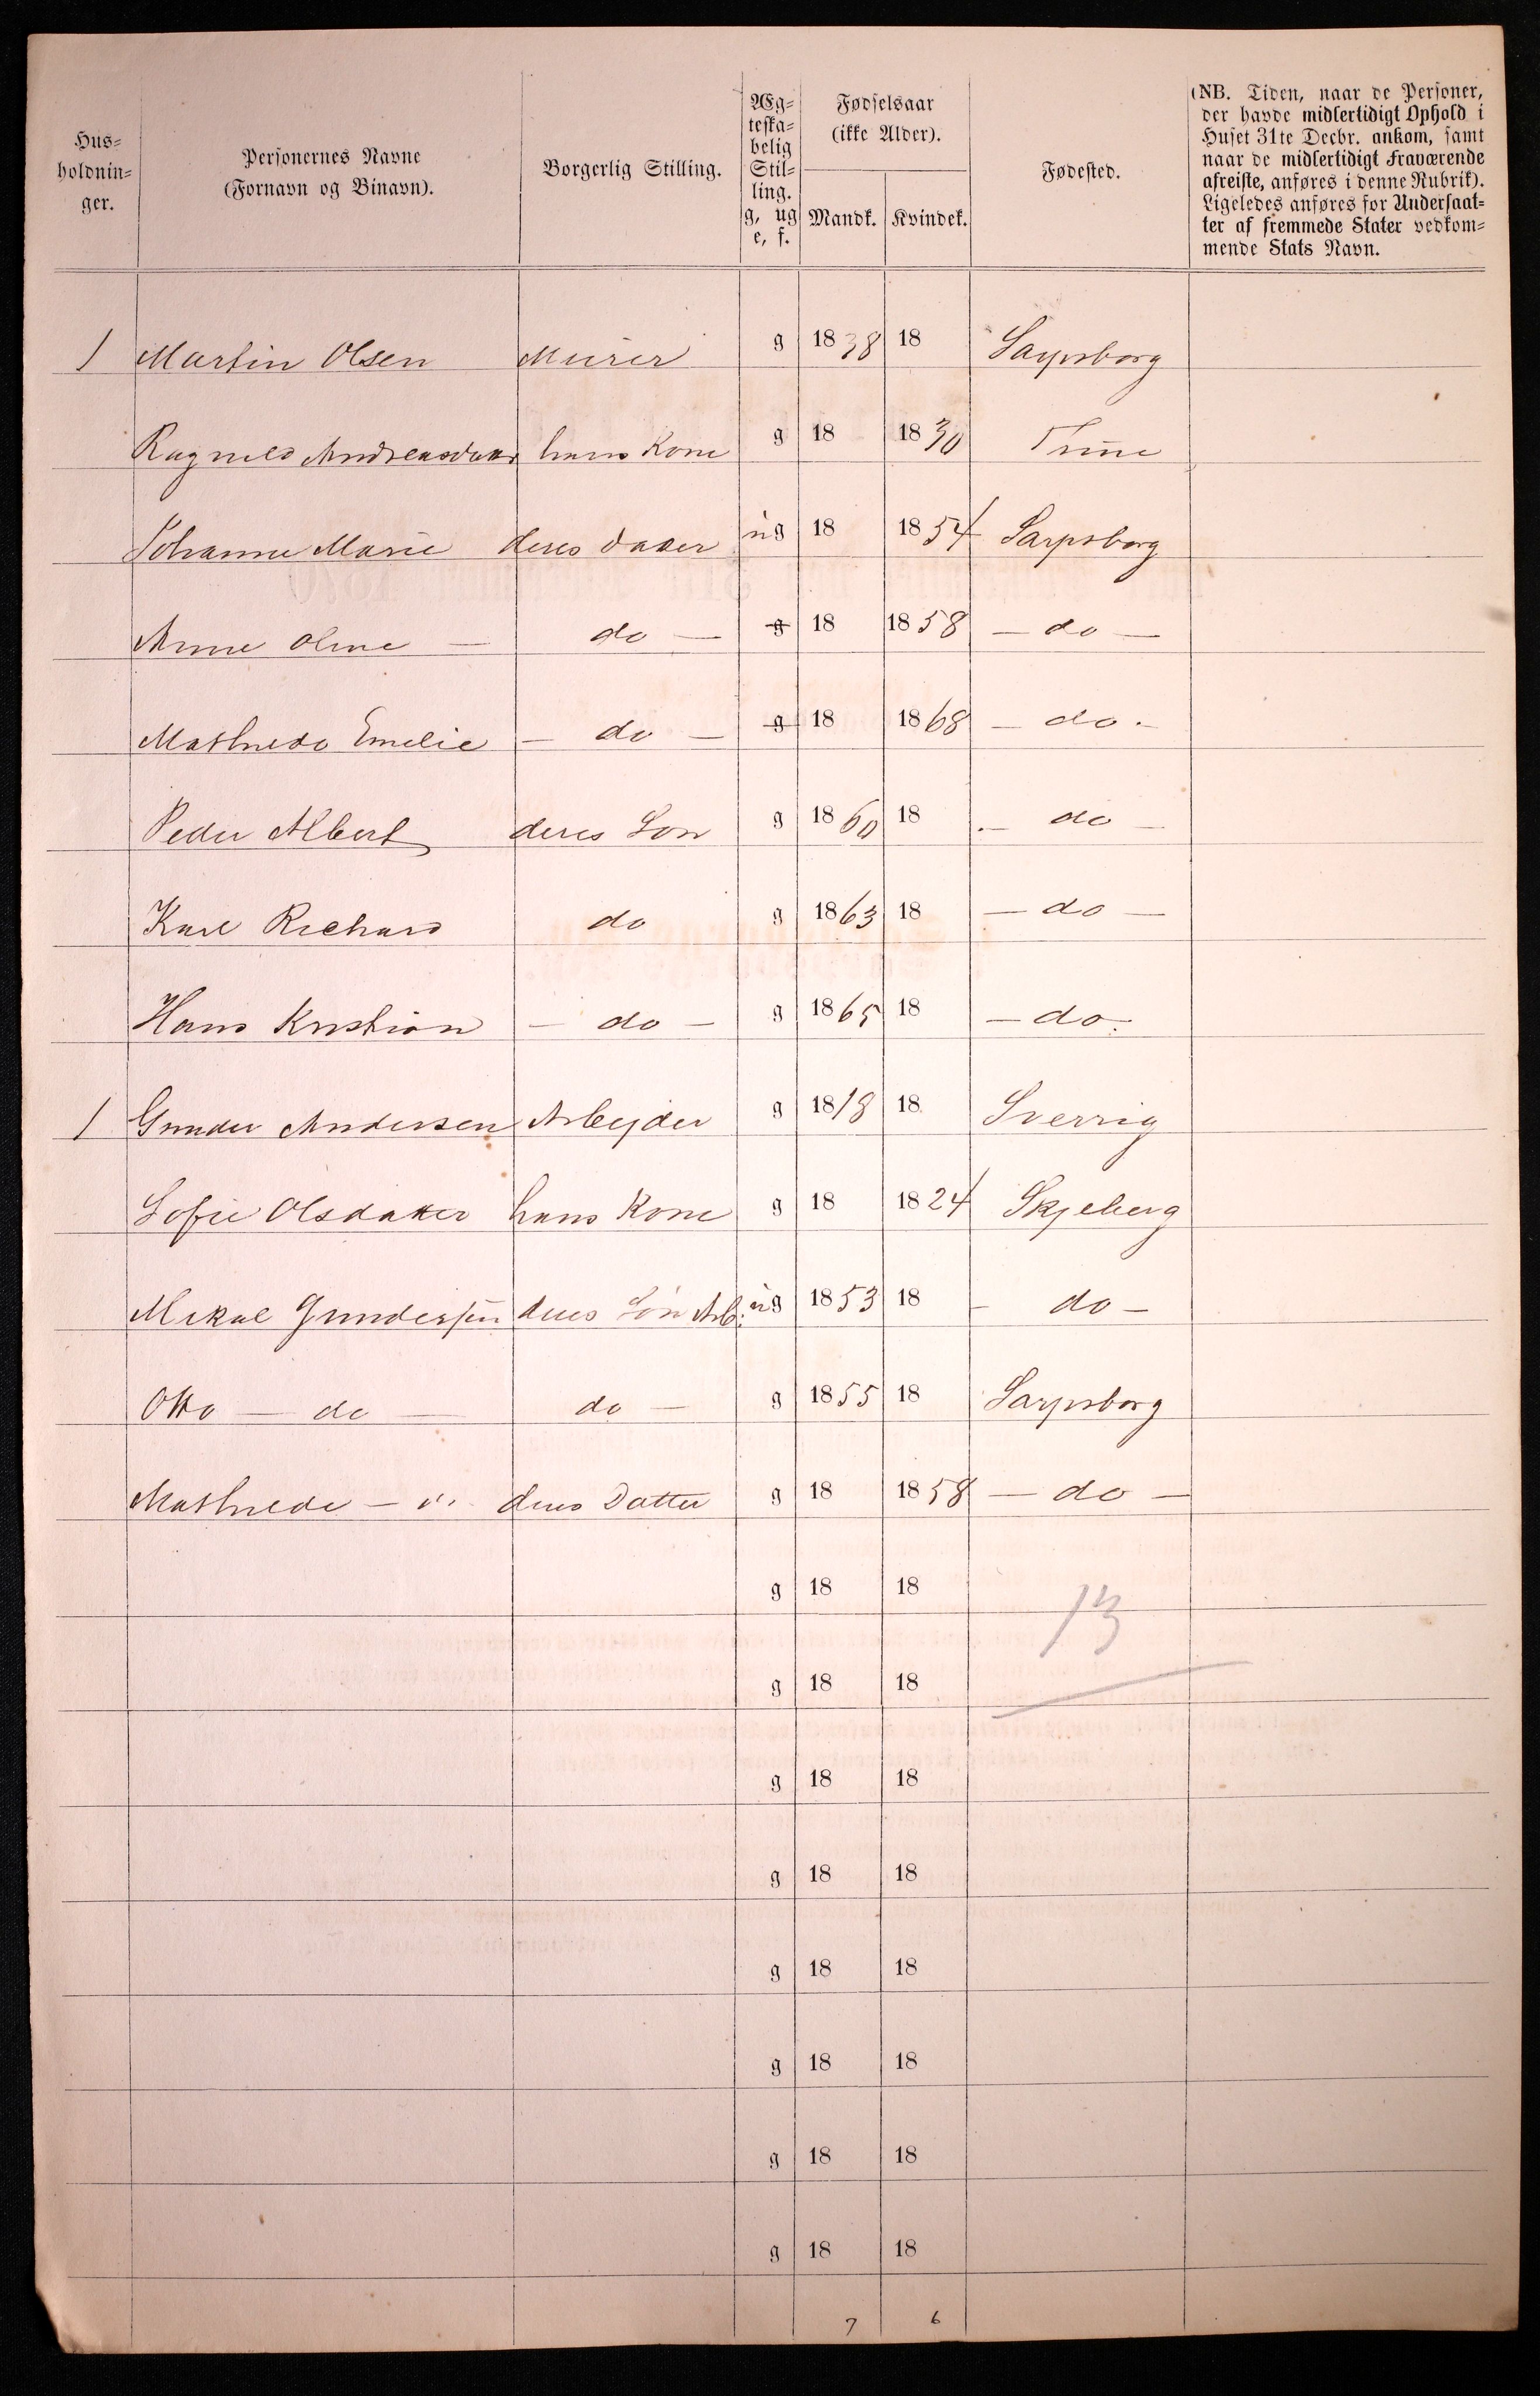 Hus-
holdnin-
ger.
Personernes Navne
(Fornavn og Binavn).
Borgerlig Stilling.
Æg-
teska-
belig
Stil-
ling.
g, ug
e, f.
Fødselsaar
(ikke Alder).
Mandk.
Kvindek.
Fødested.
(NB. Tiden, naar de Personer,
der havde midlertidigt Ophold i
Huset 31te Decbr. ankom, samt
naar de midlertidigt Fraværende
afreiste, anføres i denne Rubrik).
Ligeledes anføres for Undersaat-
ter af fremmede Stater vedkom-
mende Stats Navn.
1 Martin Olsen Murer g 1838 18 Sarpsborg
Ragnild Andreasdatr hans Kone g 18 1830 Thune
Johanne Marie deres datter ug 18 1854 Sarpsborg
Anne Oline — do — g 18 1858 — do —
Mathilde Emelie — do — g 18 1868 — do -
Peder Albert deres Søn g 1860 18 - do —
Karl Richard do g 1863 18 — do —
Hans Kristian — do — g 1865 18 — do -
1 Gunder Andersen Arbejder g 1818 18 Sverrig
Sofie Olsdatter hans Kone g 18 1824 Skjeberg
Mikal Gundersen deres Søn Arb: ug 1853 18 - do -
Otto — do — do — g 1855 18 Sarpsborg
Mathilde — " - deres Datter g 18 1858 — do —
g 18 18
13
g 18 18
g 18 18
g 18 18
g 18 18
g 18 18
g 18 18
g 18 18
7 6